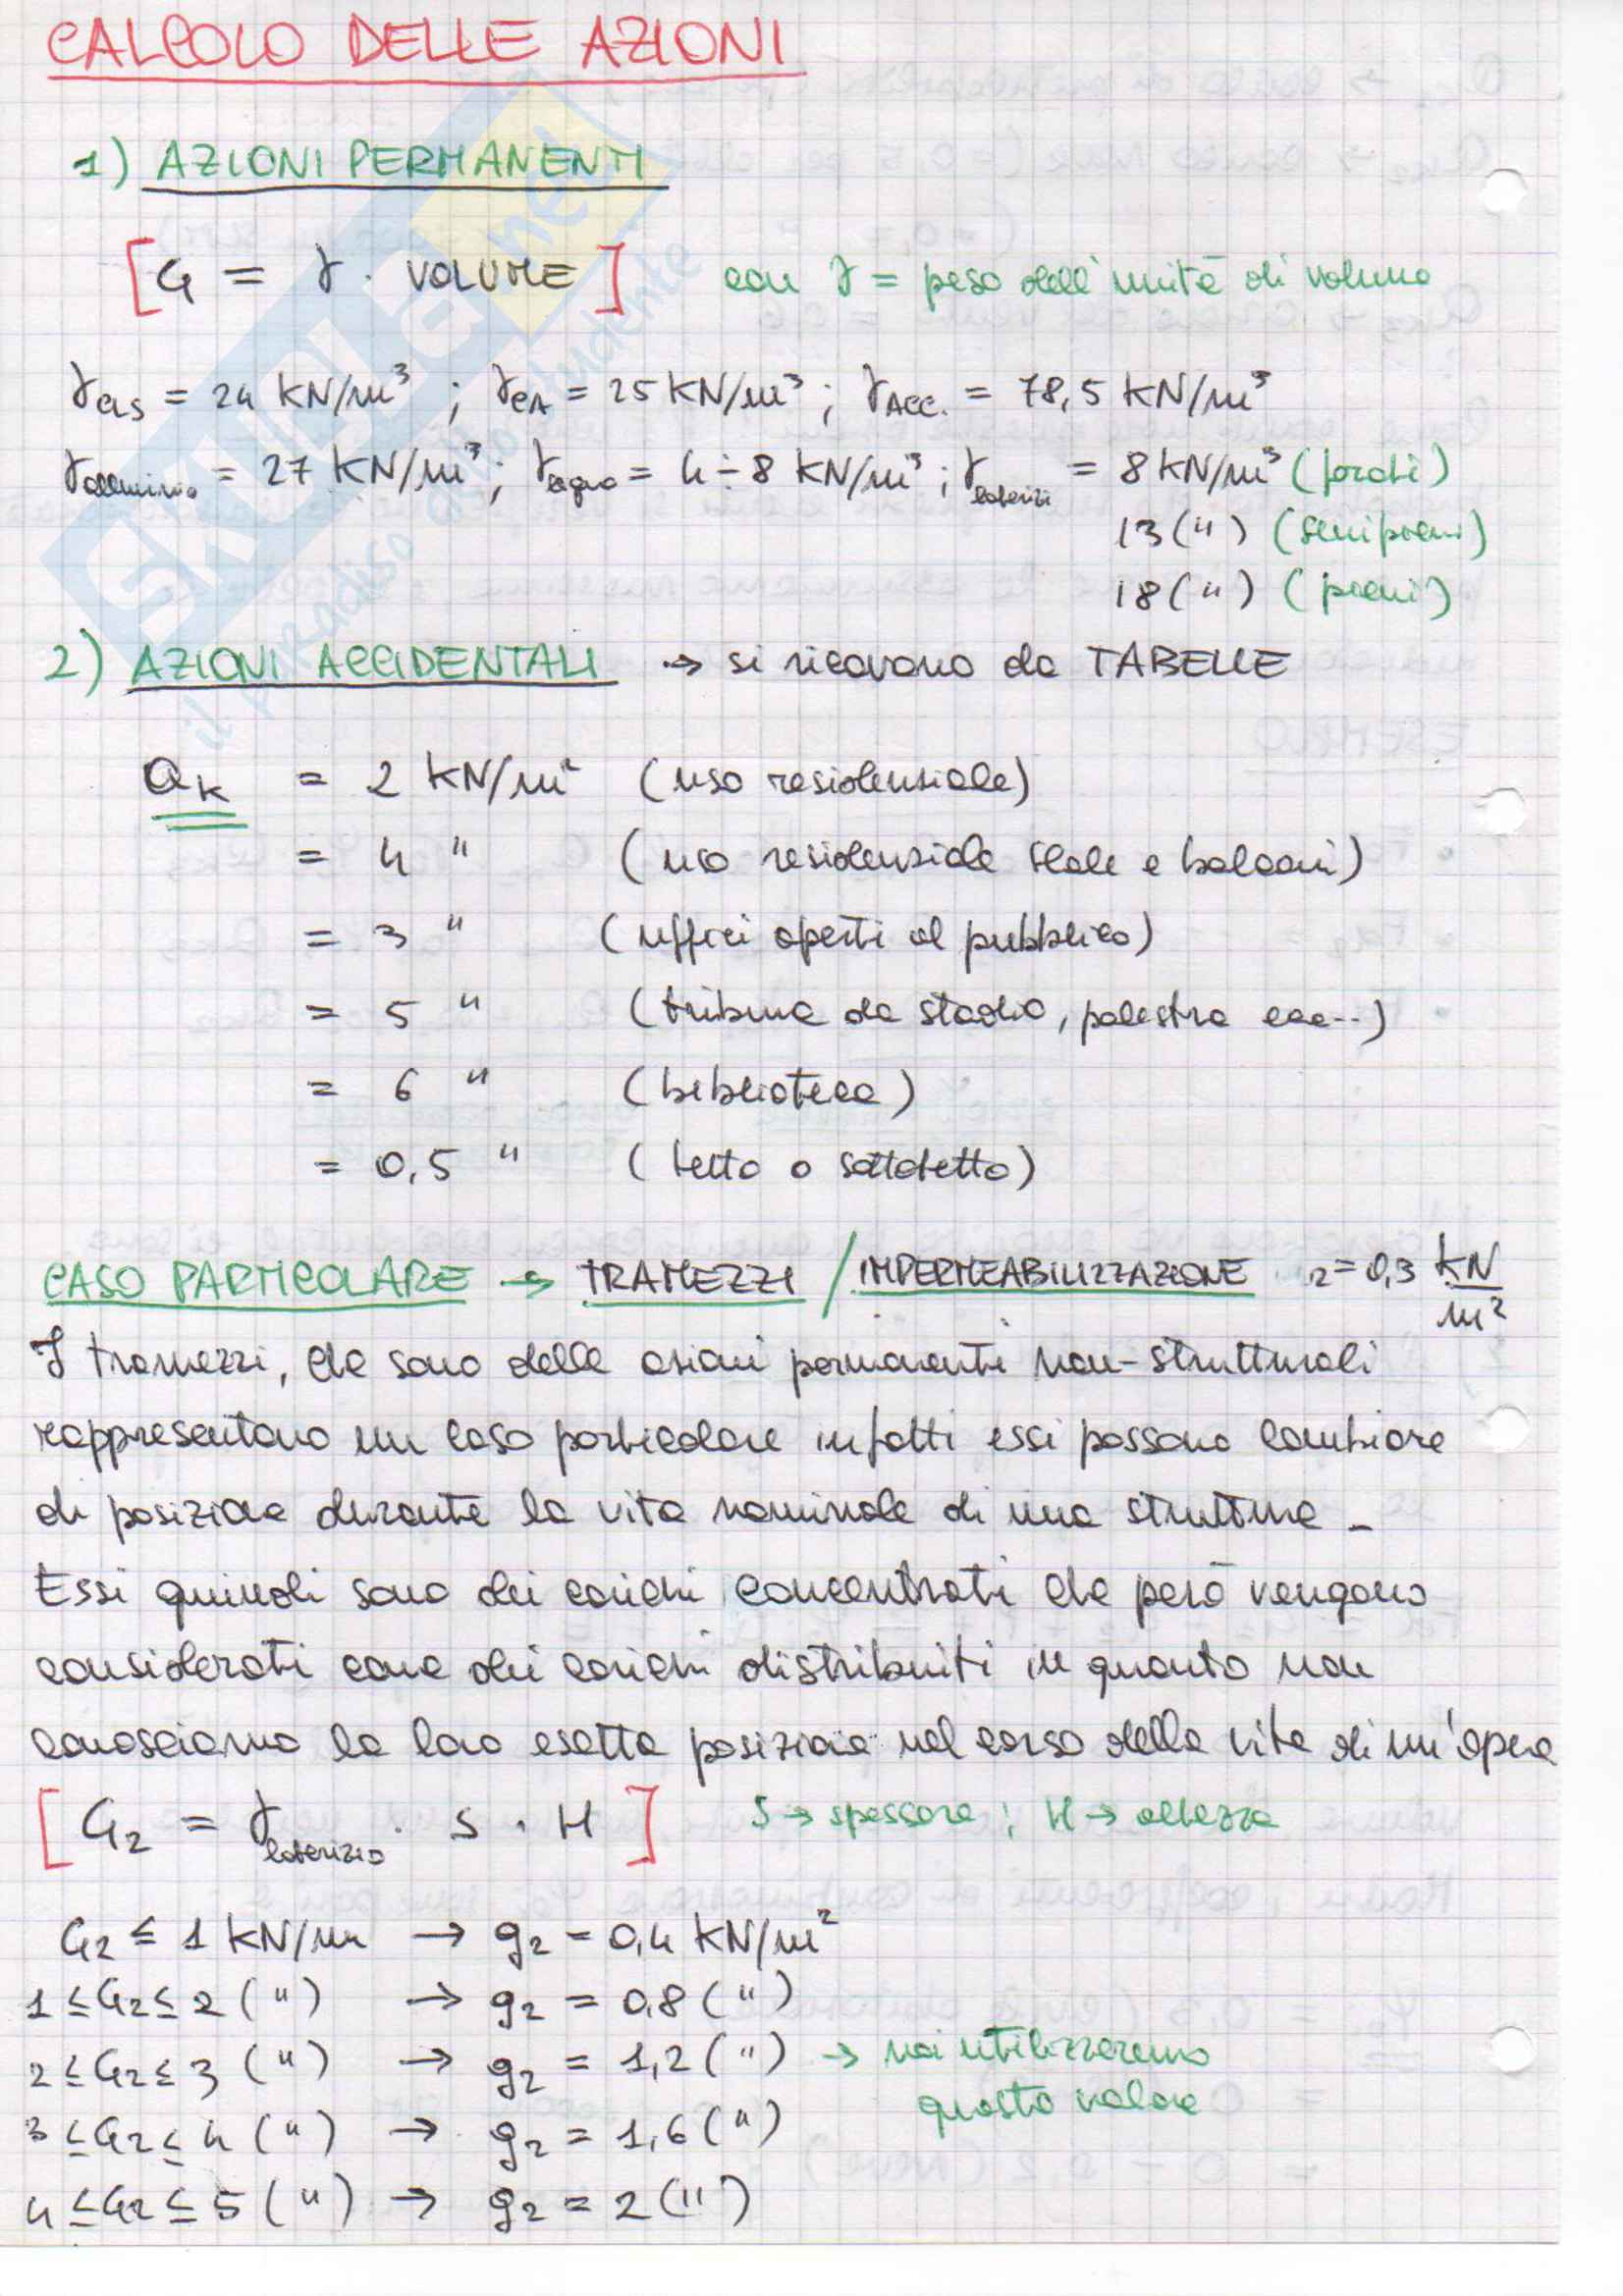 CALCOLO DELLE AZIONI
1) AZIONI PERMANENTI
[G = γ · VOLUME] con γ = peso dell'unità di volume
γcls = 24 KN/m³ ; γCA = 25 KN/m³ ; γACC. = 78,5 KN/m³
γalluminio = 27 KN/m³ ; γlegno = 4÷8 KN/m³ ; γlaterizi = 8 KN/m³ (forati)
13 (") (semipieni)
18 (") (pieni)
2) AZIONI ACCIDENTALI → si ricavano da TABELLE
Qk = 2 KN/m² (uso residenziale)
= 4 " (uso residenziale scale e balconi)
= 3 " (uffici aperti al pubblico)
= 5 " (tribune da stadio, palestra ecc..)
= 6 " (biblioteca)
= 0,5 " (tetto o sottotetto)
CASO PARTICOLARE → TRAMEZZI / IMPERMEABILIZZAZIONE = 0,3 KN/m²
I tramezzi, che sono delle azioni permanenti non-strutturali
rappresentano un caso particolare infatti essi possono cambiare
di posizione durante la vita nominale di una struttura -
Essi quindi sono dei carichi concentrati che però vengono
considerati come dei carichi distribuiti in quanto non
conosciamo la loro esatta posizione nel corso della vita di un'opera
[G2 = γlaterizio · S · H] S → spessore ; H → altezza
G2 ≤ 1 KN/m → g2 = 0,4 KN/m²
1 ≤ G2 ≤ 2 (") → g2 = 0,8 (")
2 ≤ G2 ≤ 3 (") → g2 = 1,2 (") → noi utilizzeremo
questo valore
3 ≤ G2 ≤ 4 (") → g2 = 1,6 (")
4 ≤ G2 ≤ 5 (") → g2 = 2 (")
SKUOLA.net
il paradiso dello studente